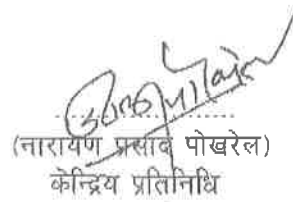 (नारायण प्रसाद पोखरेल)
केन्द्रिय प्रतिनिधि